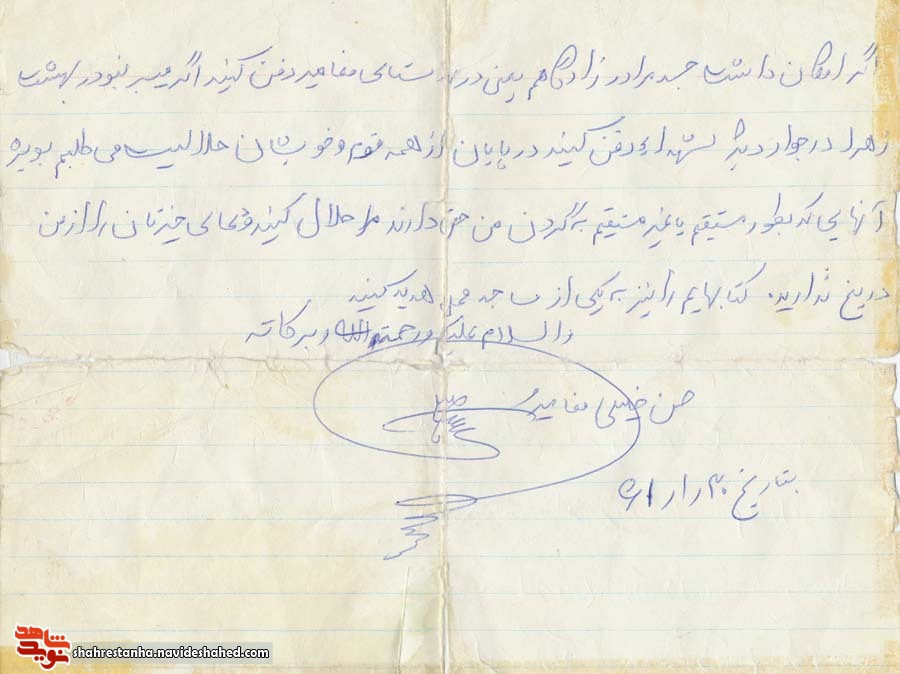 اگر امکان داشت جسد مرا در زادگاهم یعنی در روستای مغامیر دفن کنید اگر میسر نبود در بهشت
زهرا در جوار دیگر شهداء دفن کنید در پایان از همه قوم و خویشان حلالیت می طلبم بویژه
آنهایی که بطور مستقیم یا غیر مستقیم به گردن من حق دارند مرا حلال کنید و دعای خیرتان را از من
دریغ ندارید. کتابهایم را نیز به یکی از مساجد محل هدیه کنید
والسلام علیکم ورحمته الله و برکاته
حسن خلیلی مغامیر
بتاریخ ۲۰ر۱ر۶۱
نوید شاهد
shahrestanha.navideshahed.com